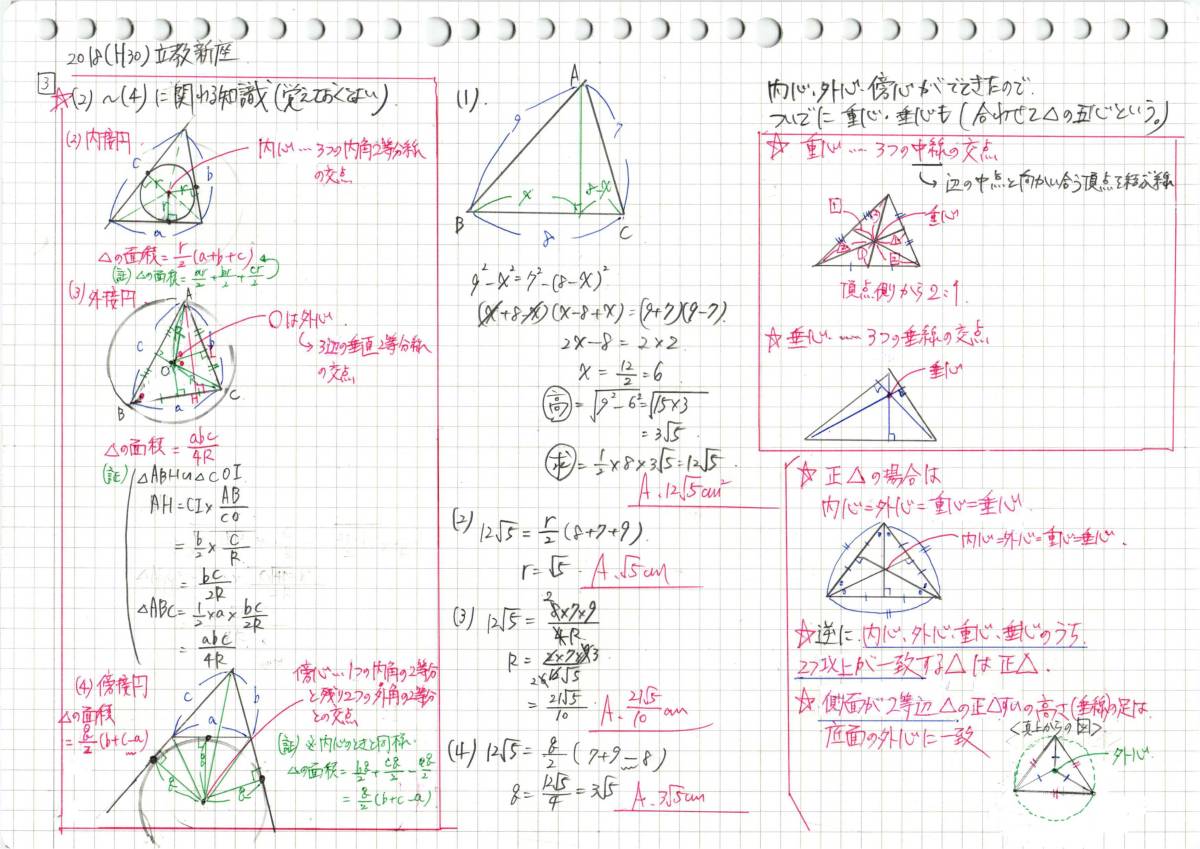 2018(H30)立教新座
3
☆(2)～(4)に関わる知識(覚えておくべし)
(2)内接円
内心…3つの内角2等分線
の交点
A
c
b
r
r
r
a
△の面積=r/2(a+b+c)
(証)△の面積=ar/2+br/2+cr/2
(3)外接円
A
c
b
R
O
I
B
H
C
a
Oは外心
↳3辺の垂直2等分線
の交点
△の面積=abc/4R
(証)
△ABH∽△COI
AH=CI×AB/CO
=b/2×c/R
=bc/2R
△ABC=1/2×a×bc/2R
=abc/4R
(4)傍接円
△の面積
=g/2(b+c-a)
c
b
a
g
g
g
傍心…1つの内角の2等分
と残り2つの外角の2等分
との交点
(証)※内心のときと同様.
△の面積=bg/2+cg/2-ag/2
=g/2(b+c-a)
(1).
A
9
7
x
8-x
B
8
C
9²-x²=7²-(8-x)²
(x+8-x)(x-8+x)=(9+7)(9-7)
2x-8=2×2
x=12/2=6
高=√9²-6²=√15×3
=3√5
求=1/2×8×3√5=12√5
A.12√5cm²
(2)
12√5=r/2(8+7+9)
r=√5
A.√5cm
(3)
12√5=8×7×9/4R
R=2×7×9/12√5
=21√5/10
A.21√5/10cm
(4)
12√5=g/2(7+9-8)
g=12√5/4=3√5
A.3√5cm
内心・外心・傍心がでてきたので
ついでに重心・垂心も(合わせて△の五心という。)
☆重心……3つの中線の交点
↳辺の中点と向かい合う頂点を結ぶ線
重心
頂点側から2:1
☆垂心……3つの垂線の交点
垂心
☆正△の場合は
内心=外心=重心=垂心
内心=外心=重心=垂心.
☆逆に、内心、外心・重心・垂心のうち
2つ以上が一致する△は正△.
☆側面が2等辺△の正△すいの高さ(垂線)の足は
底面の外心に一致
<真上からの図>
外心